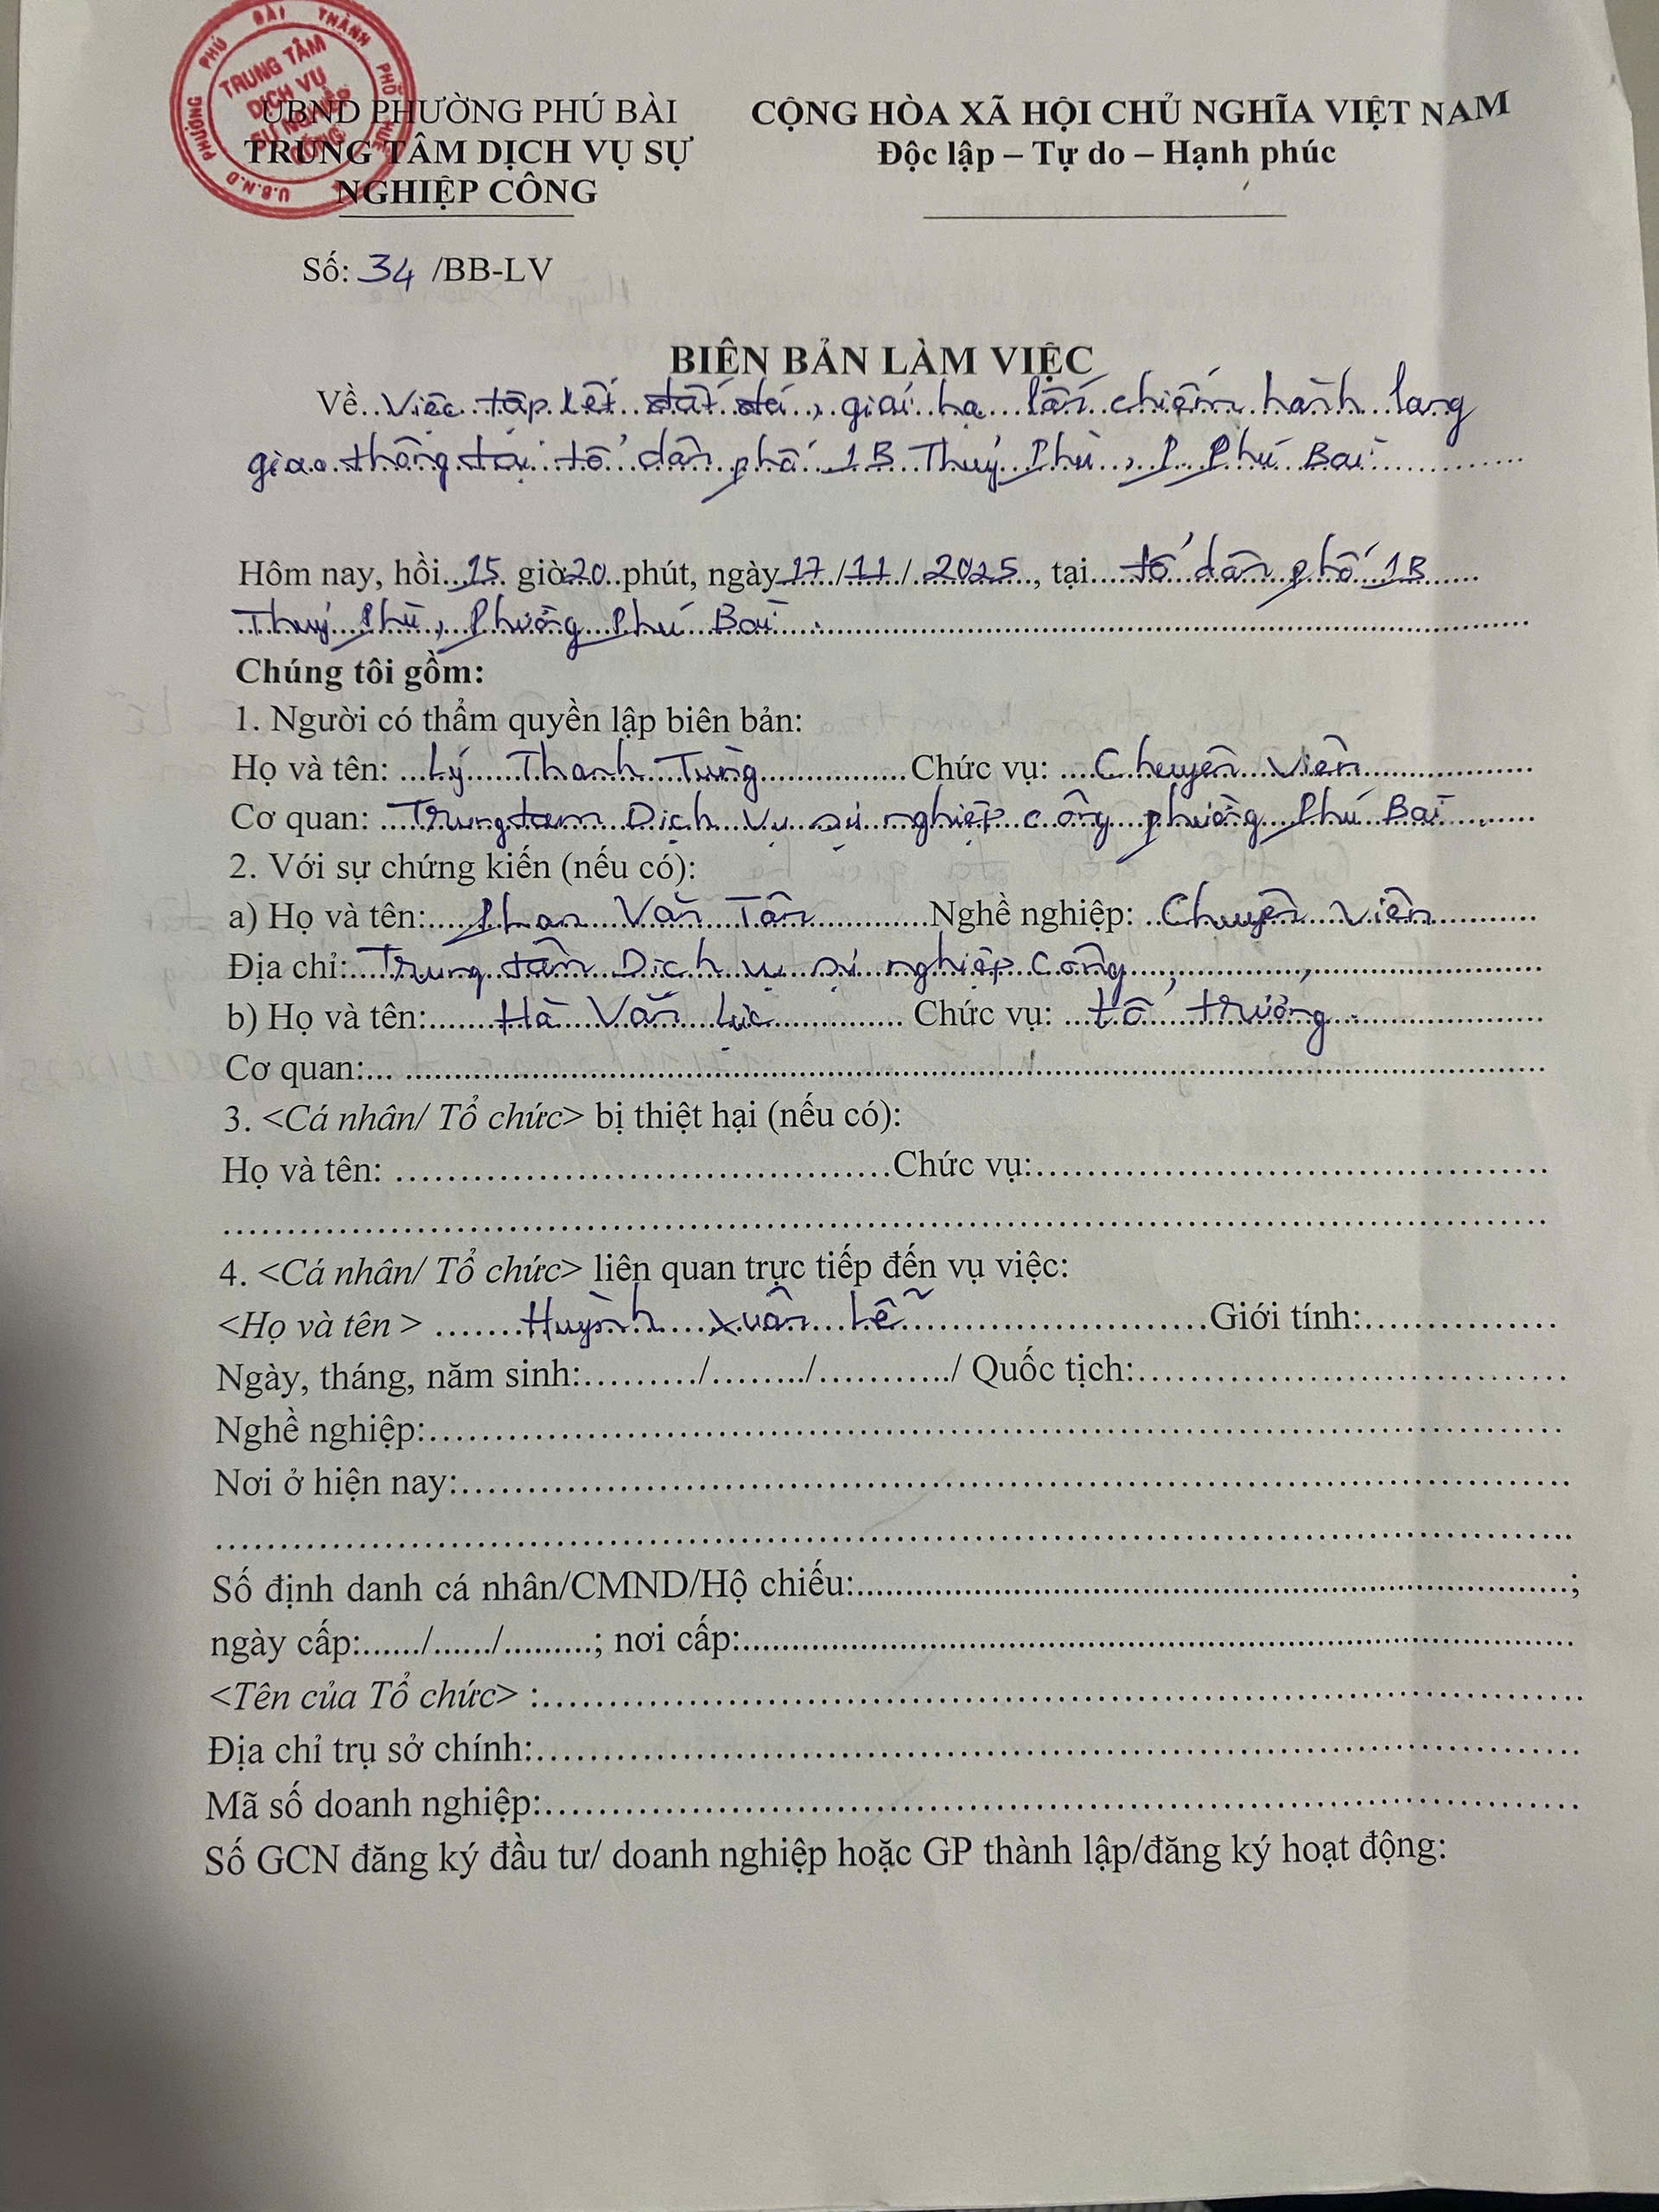 U.B.N.D PHƯỜNG PHÚ BÀI THÀNH PHỐ HUẾ
TRUNG TÂM
DỊCH VỤ
SỰ NGHIỆP
CÔNG
UBND PHƯỜNG PHÚ BÀI
TRUNG TÂM DỊCH VỤ SỰ
NGHIỆP CÔNG
CỘNG HÒA XÃ HỘI CHỦ NGHĨA VIỆT NAM
Độc lập – Tự do – Hạnh phúc
Số: 34 /BB-LV
BIÊN BẢN LÀM VIỆC
Về Việc tập kết đất đá, giải hạ lấn chiếm hành lang
giao thông tại tổ dân phố 1B Thuỷ Phù, P. Phú Bài
Hôm nay, hồi 15 giờ 20 phút, ngày 17/11/2025, tại tổ dân phố 1B
Thuỷ Phù, Phường Phú Bài.
Chúng tôi gồm:
1. Người có thẩm quyền lập biên bản:
Họ và tên: Lý Thanh Tùng Chức vụ: Chuyên Viên
Cơ quan: Trung tâm Dịch vụ sự nghiệp công phường Phú Bài
2. Với sự chứng kiến (nếu có):
a) Họ và tên: Phan Văn Tân Nghề nghiệp: Chuyên viên
Địa chỉ: Trung tâm Dịch vụ sự nghiệp Công
b) Họ và tên: Hà Văn Lực Chức vụ: tổ trưởng
Cơ quan:
3. <Cá nhân/ Tổ chức> bị thiệt hại (nếu có):
Họ và tên: Chức vụ:
4. <Cá nhân/ Tổ chức> liên quan trực tiếp đến vụ việc:
<Họ và tên > Huỳnh Xuân Lễ Giới tính:
Ngày, tháng, năm sinh:........./......../.........../ Quốc tịch:
Nghề nghiệp:
Nơi ở hiện nay:
Số định danh cá nhân/CMND/Hộ chiếu: ;
ngày cấp:....../....../.........; nơi cấp:
<Tên của Tổ chức> :
Địa chỉ trụ sở chính:
Mã số doanh nghiệp:
Số GCN đăng ký đầu tư/ doanh nghiệp hoặc GP thành lập/đăng ký hoạt động: